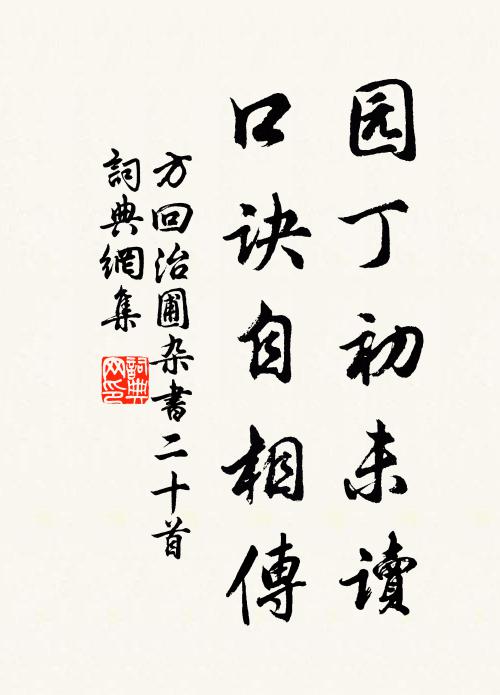 园丁初未讀
口诀自相傳
方回治圃杂書二十首
詞典網集
詞典网印